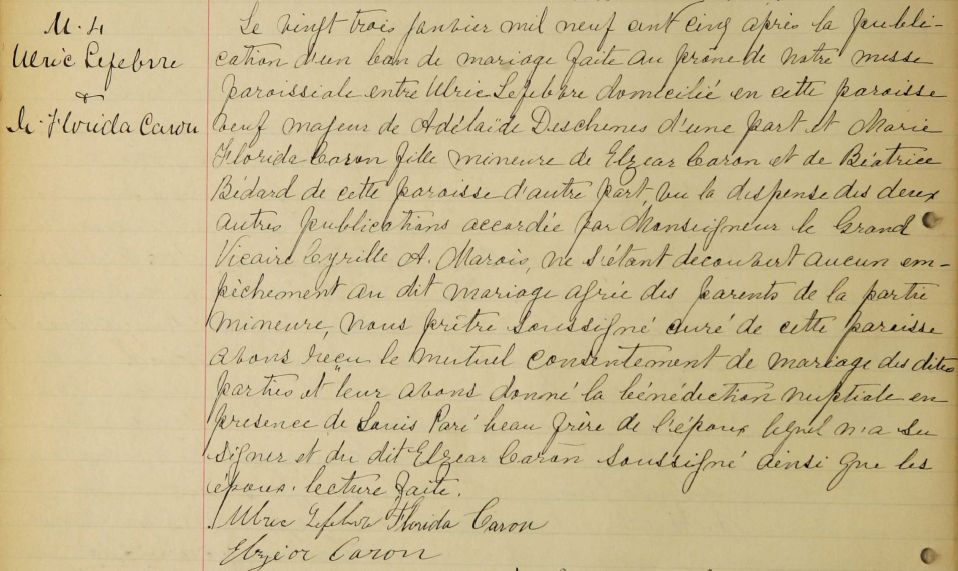 M. 4
Ulric Lefebvre
&
M. Florida Caron
Le vingt trois janvier mil neuf cent cinq après la publi-
cation d'un ban de mariage faite au prône de notre messe
paroissiale entre Ulric Lefebvre domicilié en cette paroisse
veuf majeur de Adélaïde Deschenes d'une part et Marie
Florida Caron fille mineure de Elzear Caron et de Béatrice
Bédard de cette paroisse d'autre part, vu la dispense des deux
autres publications accordée par Monseigneur le Grand
Vicaire Cyrille A. Marois, ne s'étant decouvert aucun em-
pêchement au dit mariage agrée des parents de la partie
mineure, nous prêtre soussigné curé de cette paroisse
avons reçu le mutuel consentement de mariage des dites
parties et leur avons donné la bénédiction nuptiale en
presence de Louis Paré beau frère de l'époux lequel n'a su
signer et du dit Elzear Caron soussigné ainsi que les
époux. lecture faite.
Ulric Lefebvre Florida Caron
Elzéor Caron